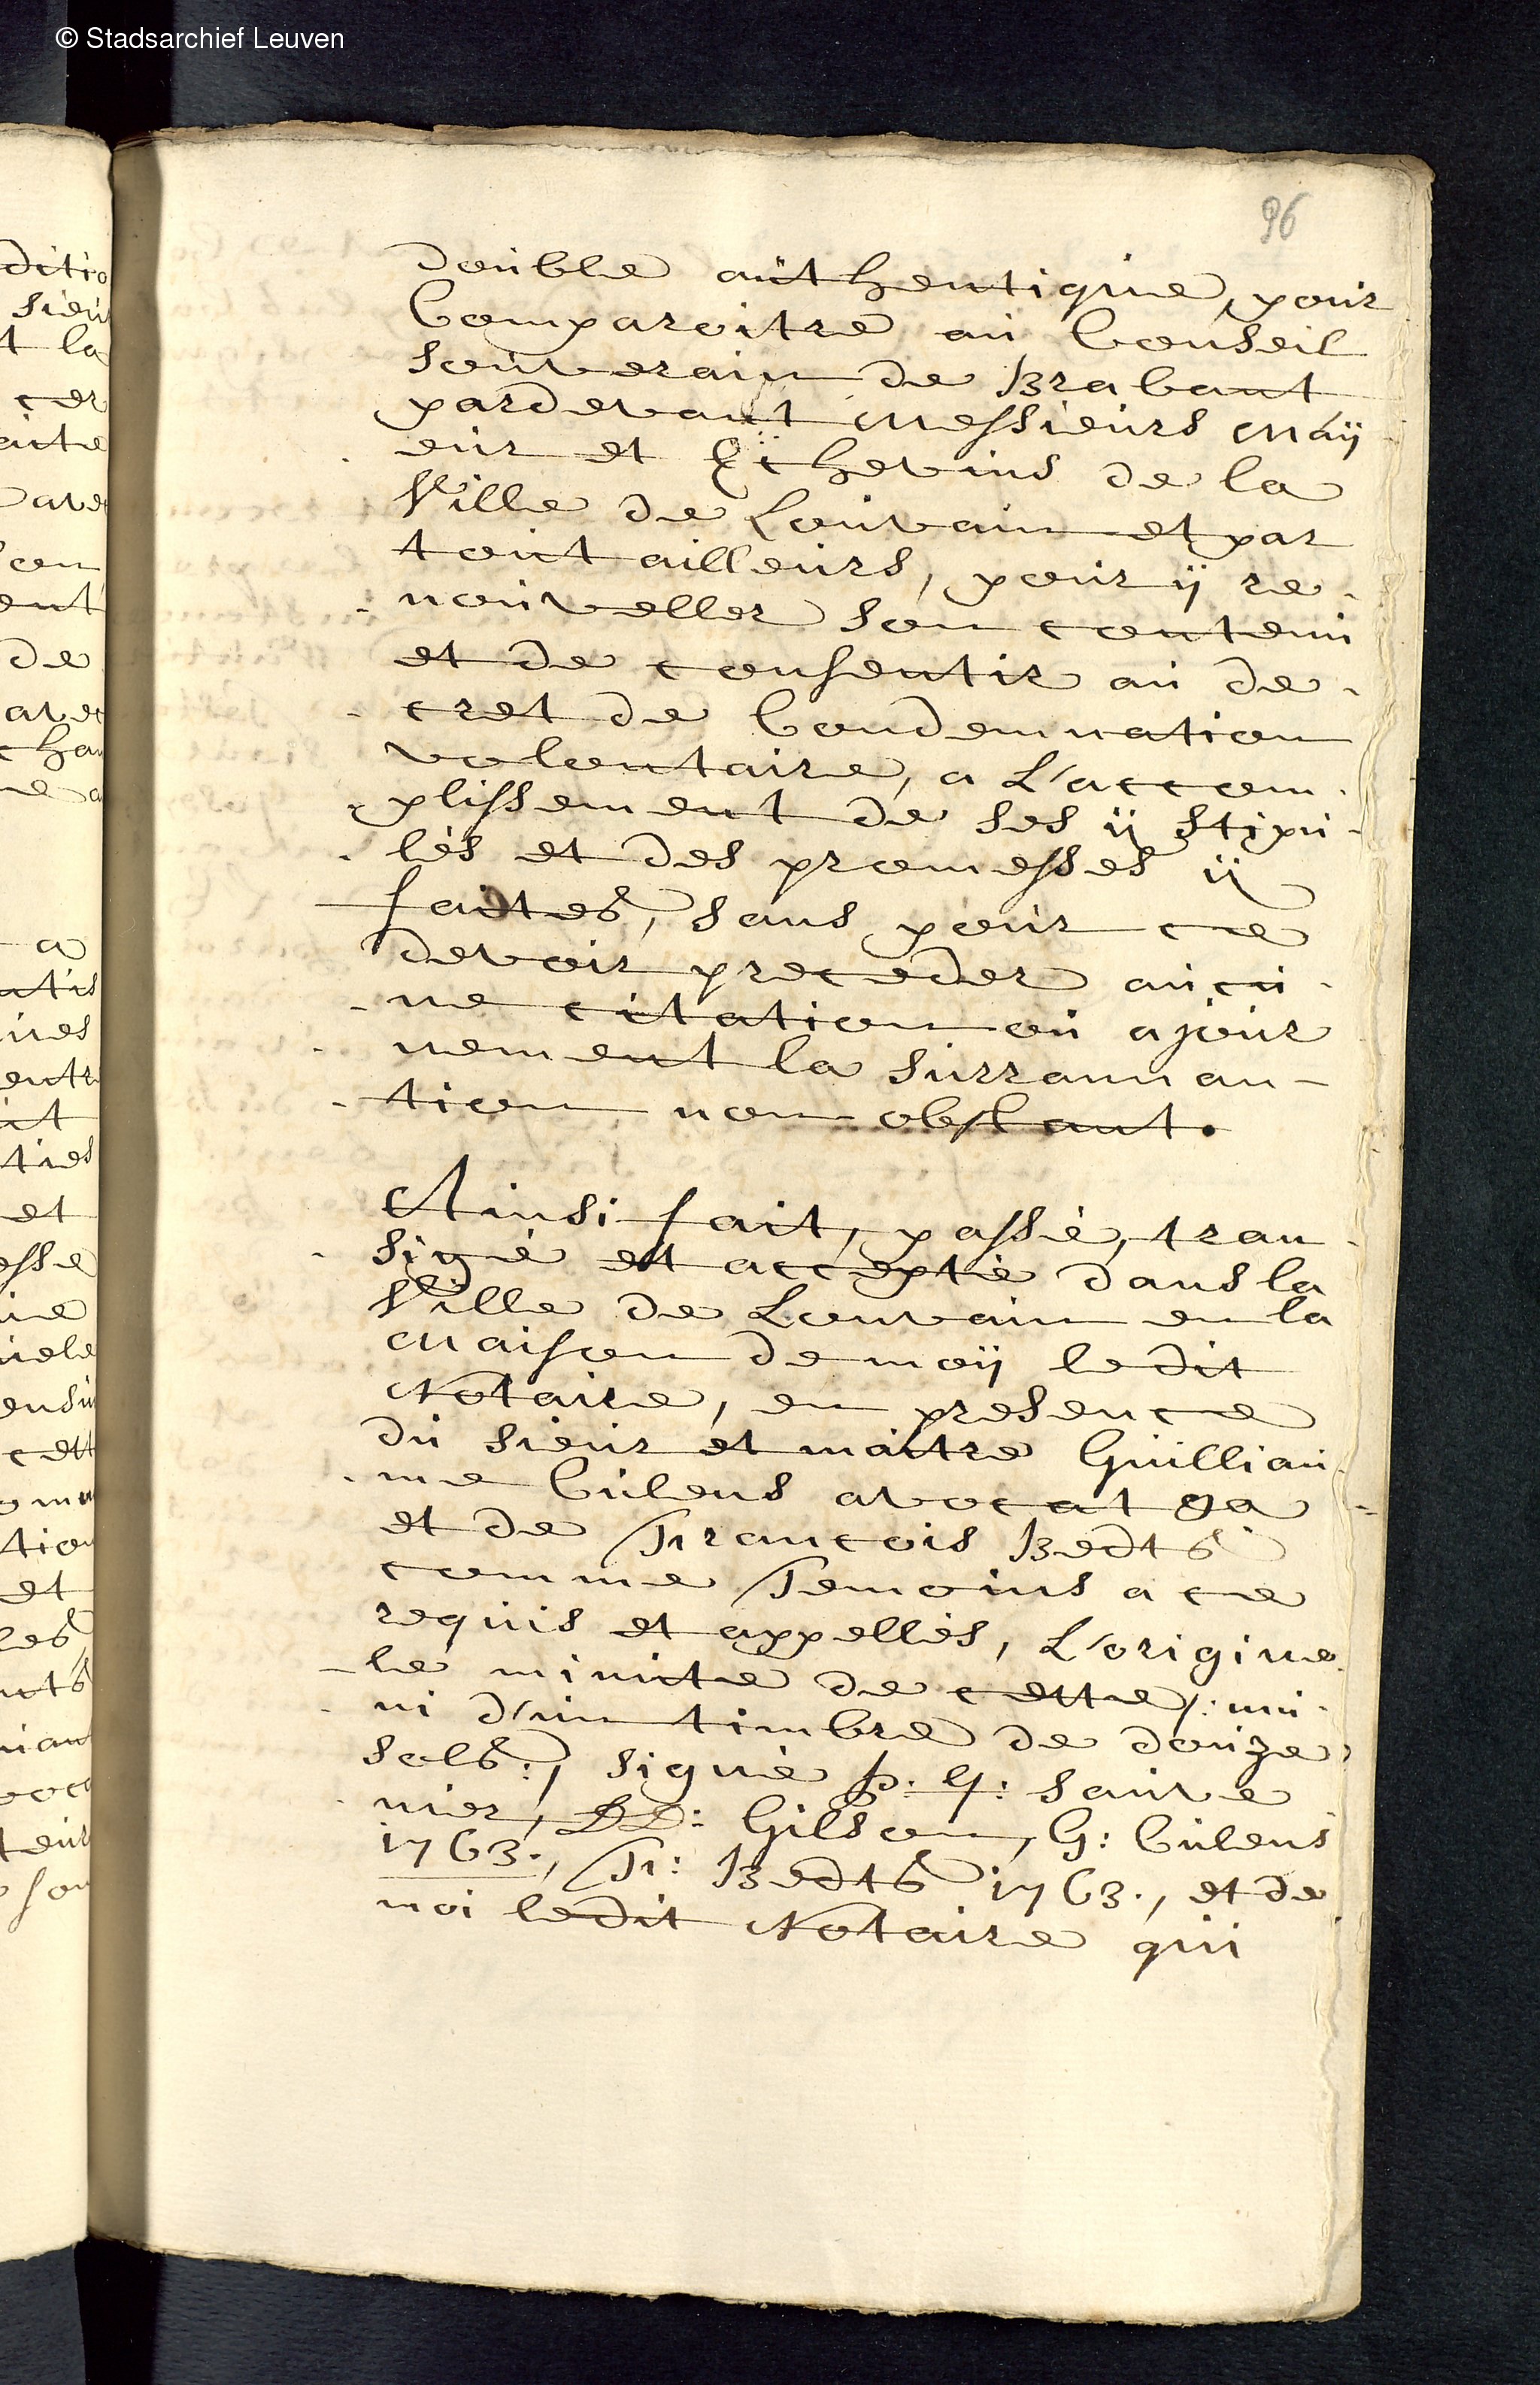 © Stadsarchief Leuven
96
double authentique, pour
Comparoitre au Conseil
souverain de Brabant
pardevant Messieurs Maÿ
eur et Echevins de la
Ville de Louvain et par
tout ailleurs, pour ÿ re-
-nouveller son contenu
et de consentir au de-
-cret de Condemnation
volontaire, a L'accom-
-plissement de ses ÿ stipu-
-lés et des promesses ÿ
faites, sans pour ce
devoir preceder aucu-
-ne citation ou ajour
-nement la surrannan-
-tion non obstant.
Ainsi fait, passé, tran-
-sigé et accepté dans la
Ville de Louvain en la
Maison de moÿ ledit
Notaire, en presence
du sieur et maitre Guilliau-
-me Culens avocat ga
et de François Bedts
comme Temoins a ce
requis et appellés, L'origine-
-le minute de cette /: mu-
-ni d'un timbre de douze
sols :/ signé p. g: sauve
-nier, DD: Gilson, G: Culens
1763., Fr: Bedts 1763., et de
moi ledit Notaire qui
ditio
sieu
t la
cer
aite
ave
ent
de
ave
chan
a
ures
entr
ties
et
esse
cett
tion
et
les
teur
son